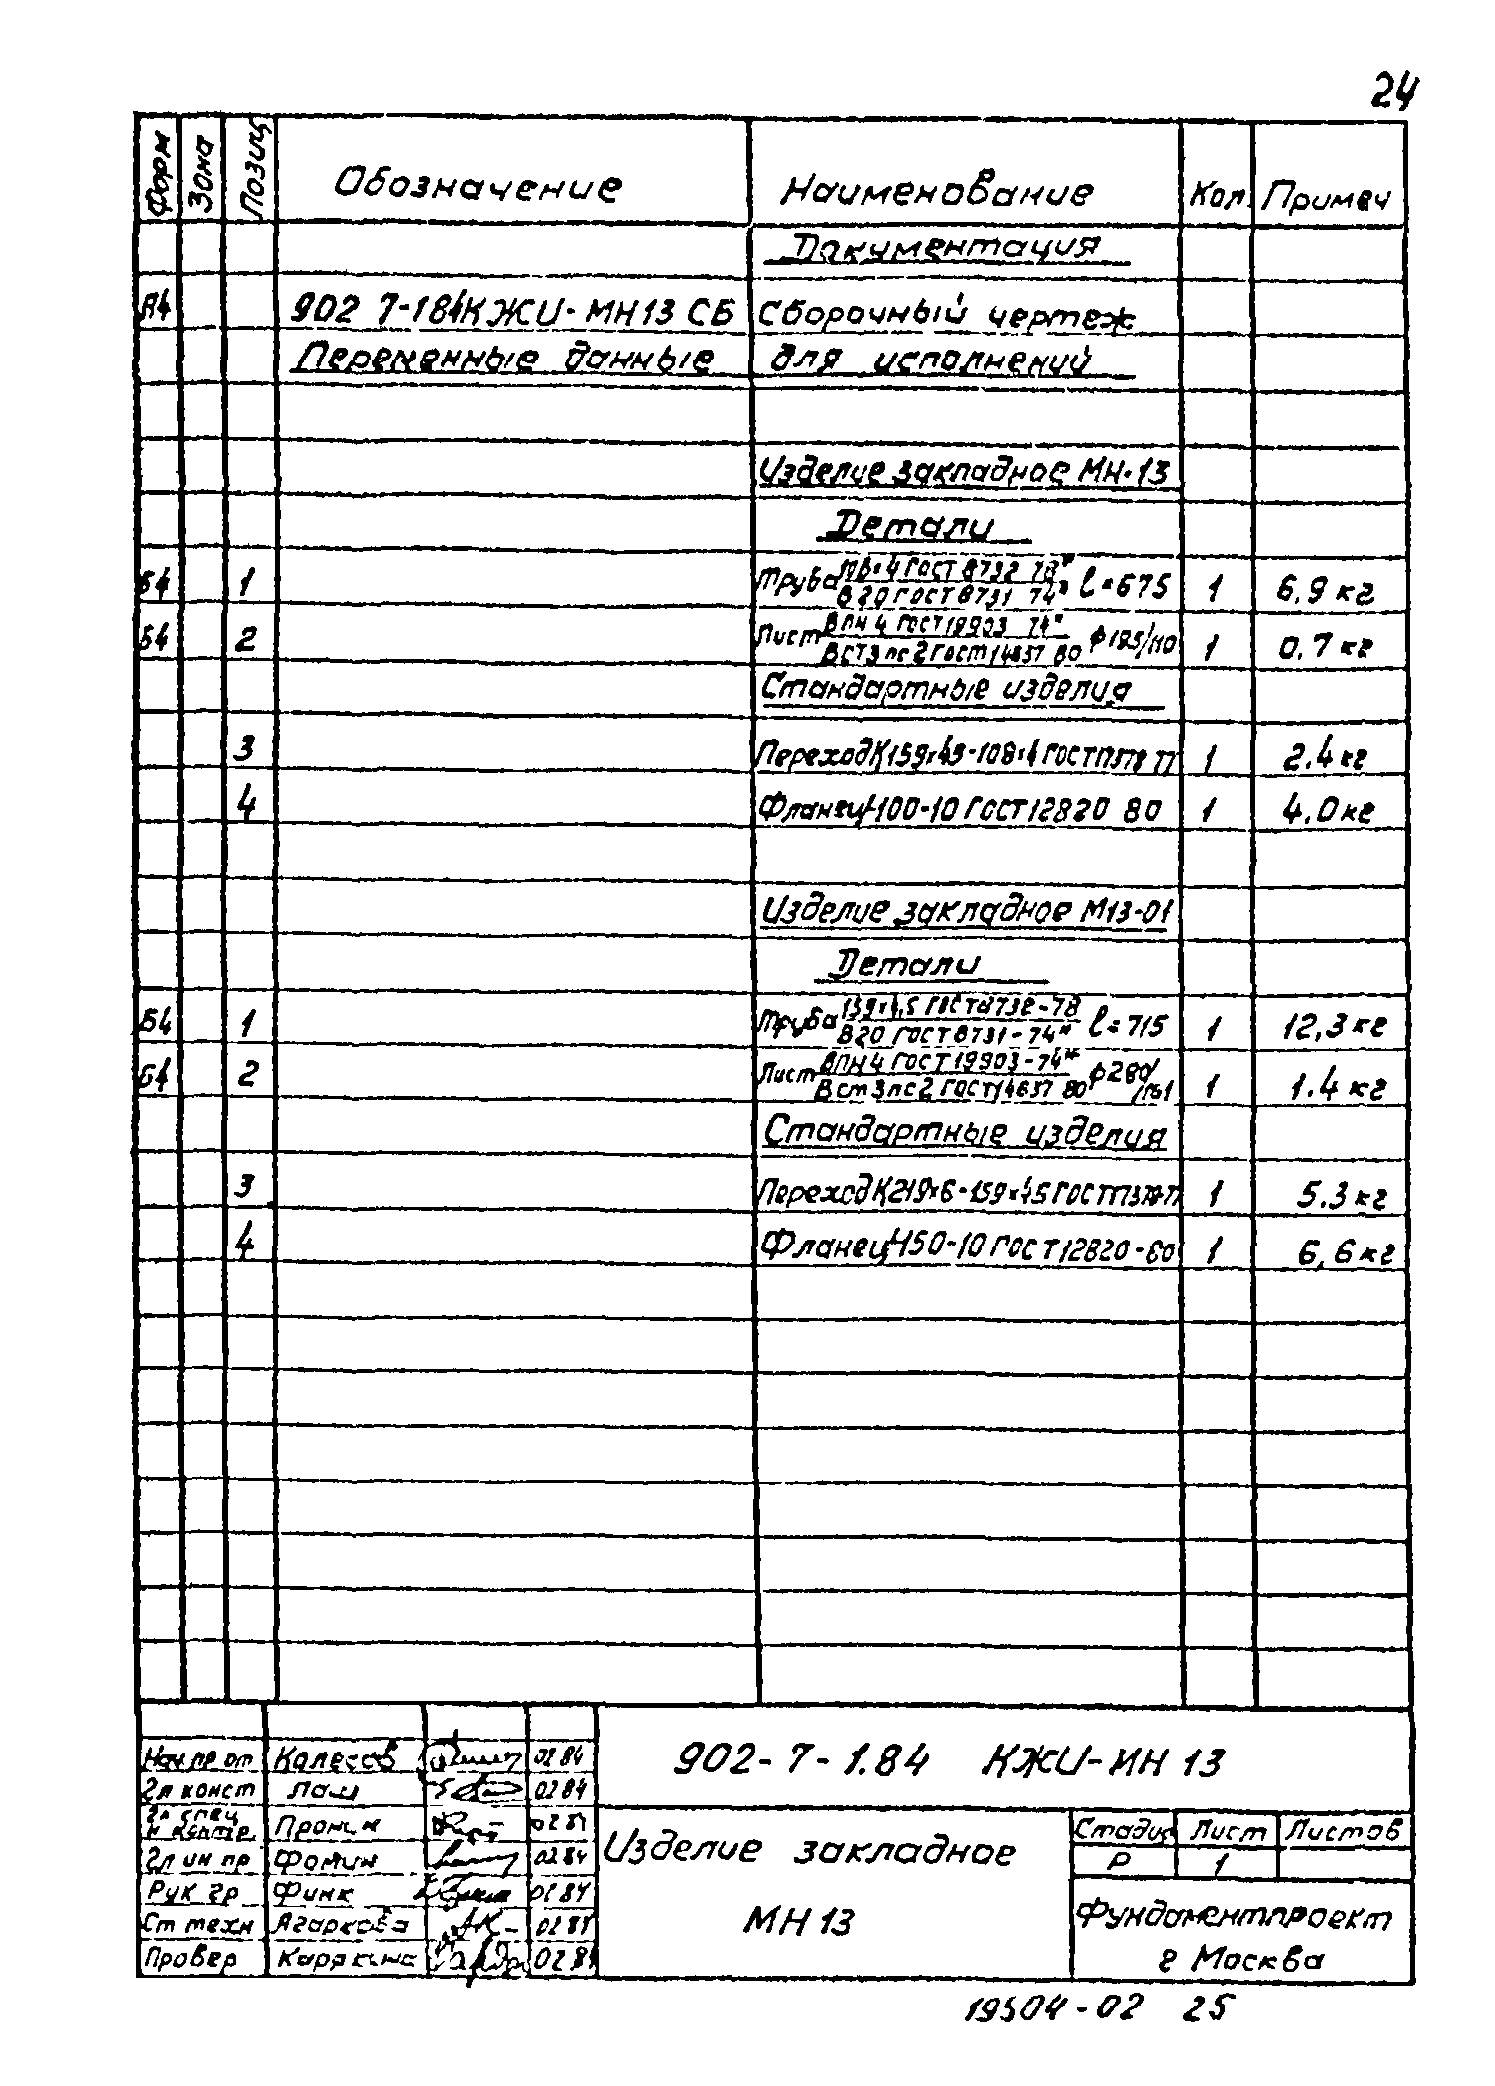 24
Форм Зона Позиц Обозначение Наименование Кол. Примеч
Документация
А4 902 7-1 84КЖИ-МН13 СБ Сборочный чертеж
Переменные данные для исполнений
Изделие закладное МН-13
Детали
Б4 1 Труба ГОСТ 8732 78* / В20 ГОСТ 8731 74* l=675 1 6,9 кг
Б4 2 Лист ВПН 4 ГОСТ 19903 74* / ВСт3пс2 ГОСТ 14637 80 ф195/110 1 0.7 кг
Стандартные изделия
3 Переход К159х4,5-108х4 ГОСТ 17378 77 1 2.4 кг
4 Фланец 1-100-10 ГОСТ 12820 80 1 4.0 кг
Изделие закладное М13-01
Детали
Б4 1 Труба 159х4,5 ГОСТ 8732-78 / В20 ГОСТ 8731-74* l=715 1 12,3 кг
Б4 2 Лист ВПН4 ГОСТ 19903-74* / ВСт3пс2 ГОСТ 14637 80 ф280/161 1 1.4 кг
Стандартные изделия
3 Переход К219х6-159х4,5 ГОСТ 17378-77 1 5.3 кг
4 Фланец 1-150-10 ГОСТ 12820-80 1 6,6 кг
902-7-1.84 КЖИ-МН 13
Нач пр от Колесов 02 84
Гл конст Лаш 02 84
Гл спец н контр. Пронин 02 84
Гл ин пр Фомин 02 84
Рук гр Финк 02 84
Ст техн Агаркова 02 84
Провер Карякина 02 84
Изделие закладное
МН 13
Стадия Лист Листов
Р 1
Фундаментпроект
г Москва
19504-02 25